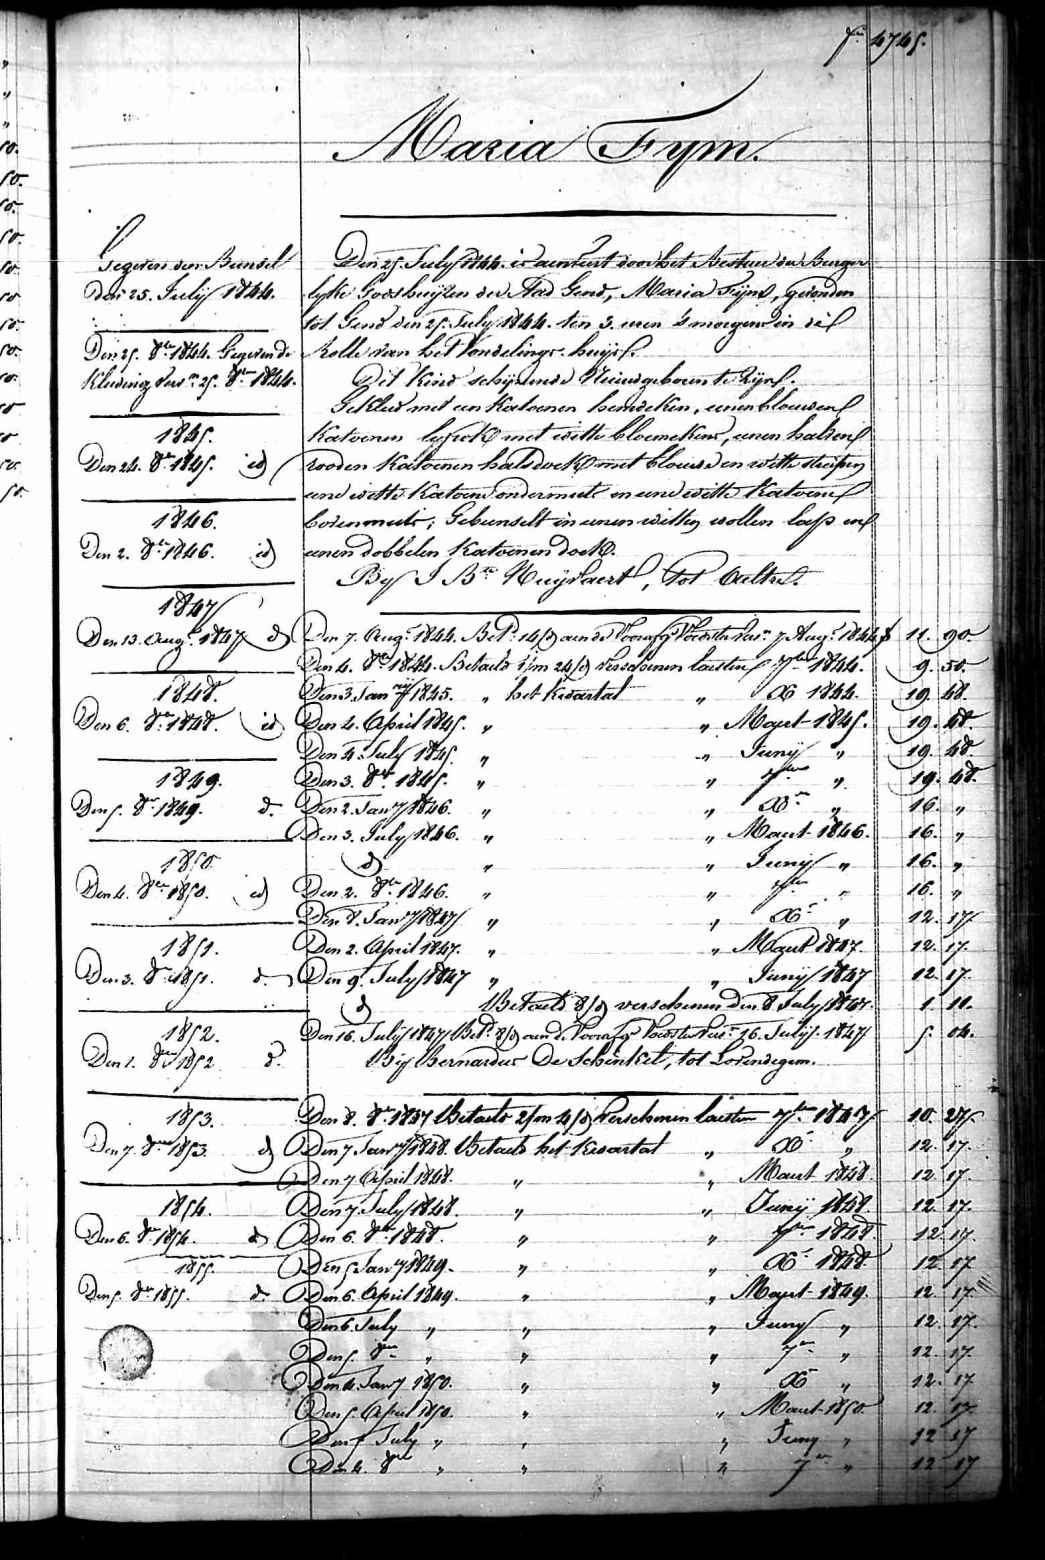 fo 4745.
Maria Fym.
Gegeven den Bunsel
Den 25. July 1844.
Den 25. 8bre 1844. Gegeven de
Kleding vers. 25. 8bre 1844.
1845.
Den 24. 8bre 1845. id
1846.
Den 2. 8bre 1846. id
1847
Den 13. Augt 1847 id
1848.
Den 6. 8bre 1848. id
1849.
Den 5. 8bre 1849. id.
1850
Den 4. 8bre 1850. id
1851.
Den 3. 8bre 1851. id
1852.
Den 1. 8bre 1852 id.
1853.
Den 7. 8bre 1853. id
1854.
Den 6. 8bre 1854. id
1855.
Den 5. 8bre 1855. id
Den 25. July 1844. is aenveert door het Bestuer der Burger
lyke Godshuyzen der Stad Gend, Maria Fym, gevonden
tot Gend den 25. July 1844. ten 3. uren 's morgens in de
Rolle van het Vondelings-huys.
Dit Kind schynende Nieuwgeboren te Zyn.
Gekleed met een Katoenen hemdeken, eenen blauwen
Katoenen lyfrok met witte bloemekens, eenen halven
rooden Katoenen halsdoek met blauwe en witte streepen
eene witte Katoene ondermuts en eene witte Katoene
bovenmuts; Gebunselt in eenen witten wollen lap en
eenen dobbelen Katoenen doek.
By J Bte Huyvaert, tot Aeltre.
Den 7. Augt 1844. Betd 14/d aen de Voorzg Voedster vers. 7 Augt 1844 11. 90.
Den 4. 8bre 1844. Betaeld 1/m 24/d verschenen laesten 7bre 1844. 9. 50.
Den 3. Janry 1845. " het Kwartael " Xbre 1844. 19. 48.
Den 4. April 1845. " " Maert 1845. 19. 48.
Den 4. July 1845. " " Juny " 19. 48.
Den 3. 8bre 1845. " " 7bre " 19. 48.
Den 2. Janry 1846. " " Xbre " 16. "
Den 3. July 1846. " " Maert 1846. 16. "
id " " Juny " 16. "
Den 2. 8bre 1846. " " 7bre " 16. "
Den 8. Janry 1847 " " Xbre " 12. 17
Den 2. April 1847. " " Maert 1847. 12. 17.
Den 9. July 1847 " " Juny 1847 12. 17.
id Betaeld 8/d verschenen den 8. July 1847. 1. 10.
Den 16. July 1847 Betd 8/d aen de Voorzg Voedster vers. 16 July 1847 5. 04.
By Bernardus De Schinkel, tot Lovendegem.
Den 8. 8bre 1847 Betaeld 2/m 14/d verschenen laesten 7bre 1847 10. 27.
Den 7 Janry 1848. Betaeld het Kwartael " Xbre " 12. 17.
Den 7 April 1848. " " Maert 1848. 12. 17.
Den 7. July 1848. " " Juny 1848. 12. 17.
Den 6. 8bre 1848. " " 7bre 1848 12. 17.
Den 5 Janry 1849. " " Xbre 1848. 12. 17
Den 6. April 1849. " " Maert 1849. 12. 17
Den 6. July " " " Juny " 12. 17.
Den 5. 8bre " " " 7bre " 12. 17.
Den 4. Janry 1850. " " Xbre " 12. 17
Den 5. April 1850. " " Maert 1850. 12. 17
Den 5 July " " " Juny " 12 17
Den 4. 8bre " " " 7bre " 12 17